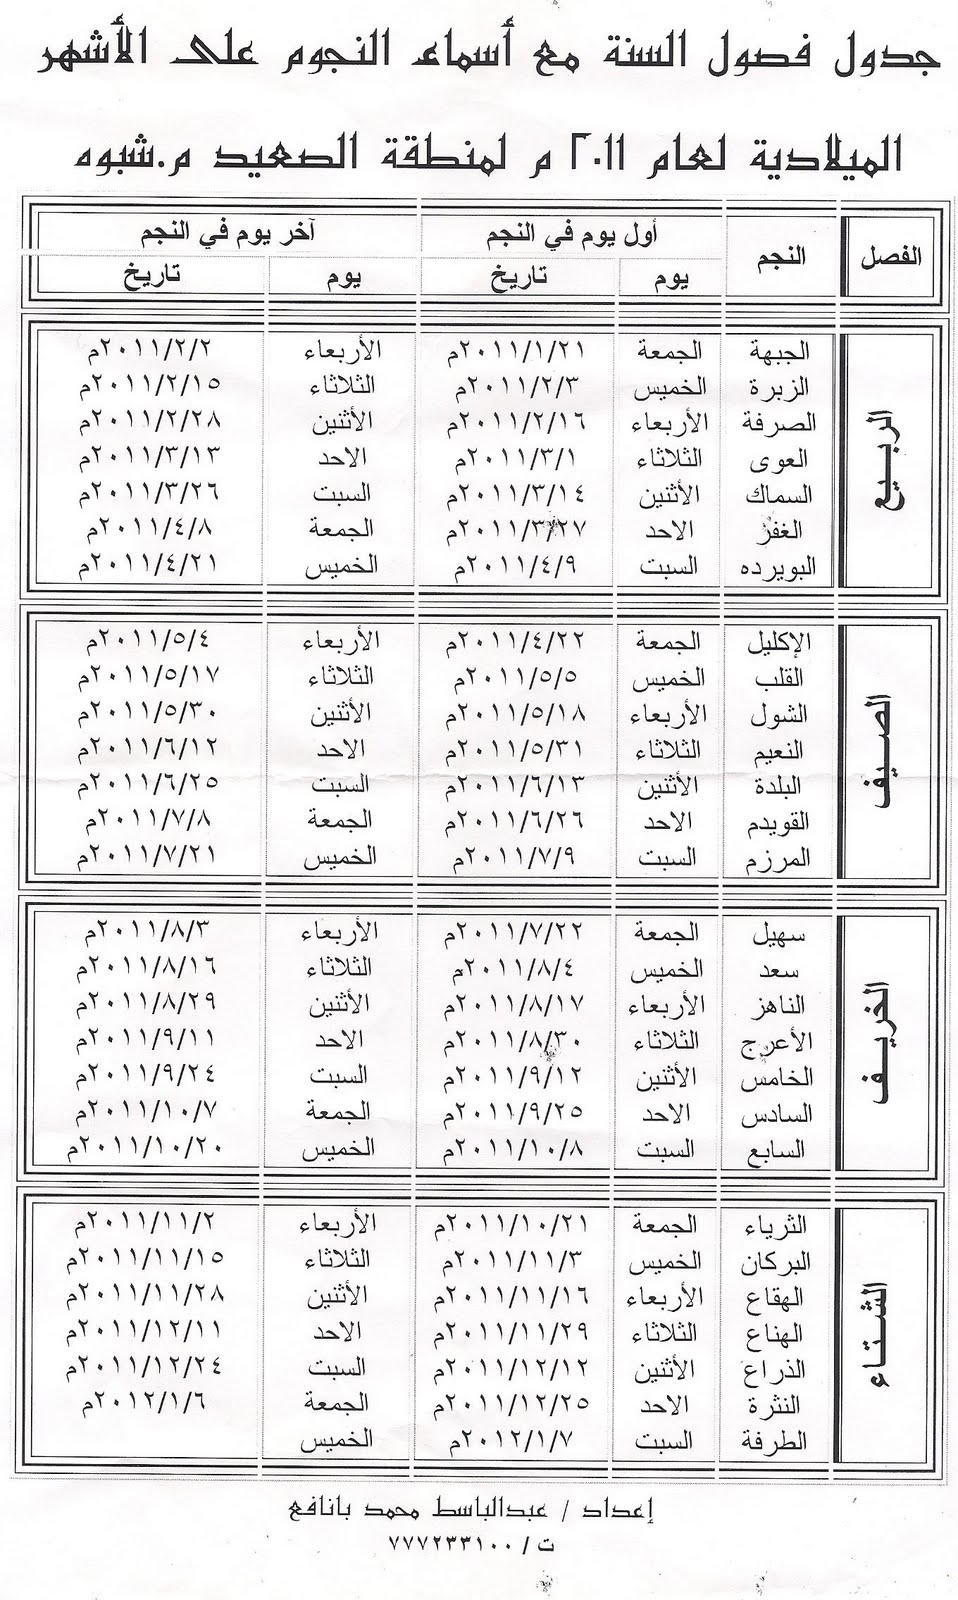 جدول فصول السنة مع أسماء النجوم على الأشهر
الميلادية لعام ٢٠١١ م لمنطقة الصعيد م.شبوه
الفصل النجم أول يوم في النجم آخر يوم في النجم
يوم تاريخ يوم تاريخ
الربيع
الجبهة الجمعة ٢٠١١/١/٢١م الأربعاء ٢٠١١/٢/٢م
الزبرة الخميس ٢٠١١/٢/٣م الثلاثاء ٢٠١١/٢/١٥م
الصرفة الأربعاء ٢٠١١/٢/١٦م الأثنين ٢٠١١/٢/٢٨م
العوى الثلاثاء ٢٠١١/٣/١م الاحد ٢٠١١/٣/١٣م
السماك الأثنين ٢٠١١/٣/١٤م السبت ٢٠١١/٣/٢٦م
الغفر الاحد ٢٠١١/٣/٢٧م الجمعة ٢٠١١/٤/٨م
البويرده السبت ٢٠١١/٤/٩م الخميس ٢٠١١/٤/٢١م
الصيف
الإكليل الجمعة ٢٠١١/٤/٢٢م الأربعاء ٢٠١١/٥/٤م
القلب الخميس ٢٠١١/٥/٥م الثلاثاء ٢٠١١/٥/١٧م
الشول الأربعاء ٢٠١١/٥/١٨م الأثنين ٢٠١١/٥/٣٠م
النعيم الثلاثاء ٢٠١١/٥/٣١م الاحد ٢٠١١/٦/١٢م
البلدة الأثنين ٢٠١١/٦/١٣م السبت ٢٠١١/٦/٢٥م
القويدم الاحد ٢٠١١/٦/٢٦م الجمعة ٢٠١١/٧/٨م
المرزم السبت ٢٠١١/٧/٩م الخميس ٢٠١١/٧/٢١م
الخريف
سهيل الجمعة ٢٠١١/٧/٢٢م الأربعاء ٢٠١١/٨/٣م
سعد الخميس ٢٠١١/٨/٤م الثلاثاء ٢٠١١/٨/١٦م
الناهز الأربعاء ٢٠١١/٨/١٧م الأثنين ٢٠١١/٨/٢٩م
الأعرج الثلاثاء ٢٠١١/٨/٣٠م الاحد ٢٠١١/٩/١١م
الخامس الأثنين ٢٠١١/٩/١٢م السبت ٢٠١١/٩/٢٤م
السادس الاحد ٢٠١١/٩/٢٥م الجمعة ٢٠١١/١٠/٧م
السابع السبت ٢٠١١/١٠/٨م الخميس ٢٠١١/١٠/٢٠م
الشتاء
الثرياء الجمعة ٢٠١١/١٠/٢١م الأربعاء ٢٠١١/١١/٢م
البركان الخميس ٢٠١١/١١/٣م الثلاثاء ٢٠١١/١١/١٥م
الهقاع الأربعاء ٢٠١١/١١/١٦م الأثنين ٢٠١١/١١/٢٨م
الهناع الثلاثاء ٢٠١١/١١/٢٩م الاحد ٢٠١١/١٢/١١م
الذراع الأثنين ٢٠١١/١٢/١٢م السبت ٢٠١١/١٢/٢٤م
النثرة الاحد ٢٠١١/١٢/٢٥م الجمعة ٢٠١٢/١/٦م
الطرفة السبت ٢٠١٢/١/٧م الخميس
إعداد / عبدالباسط محمد بانافع
ت / ٧٧٧٢٣٣١٠٠